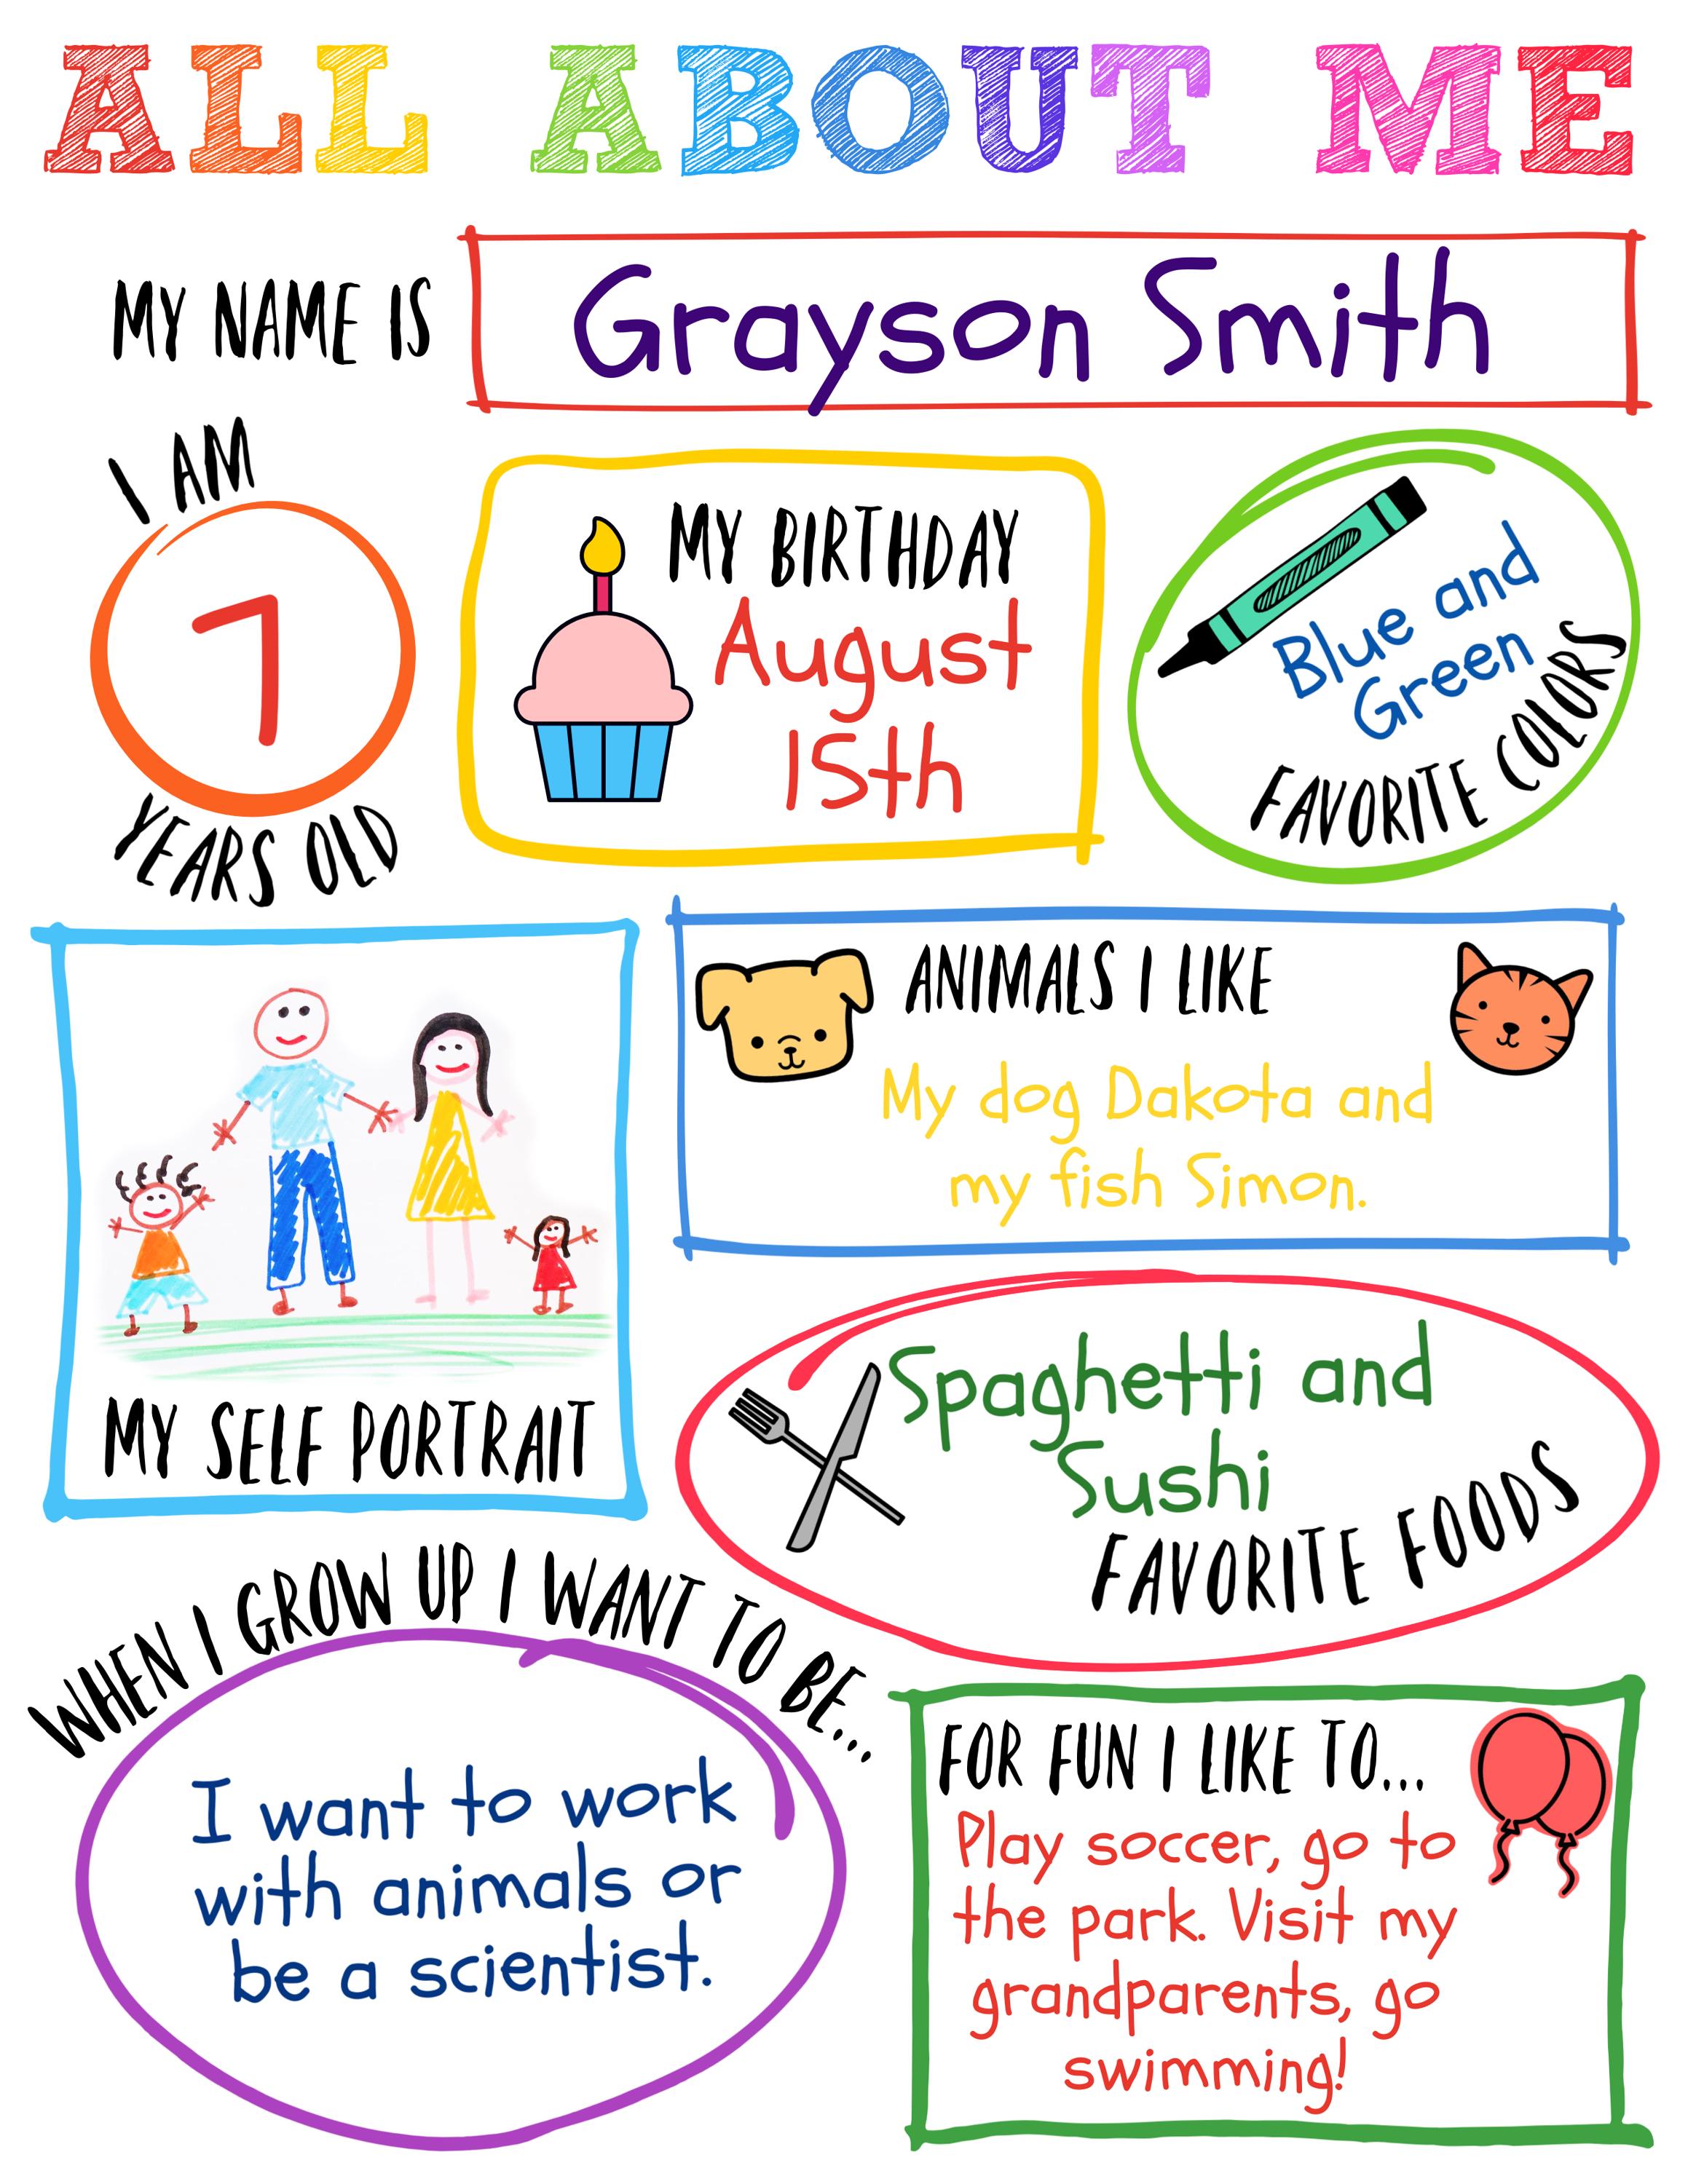 ALL ABOUT ME
MY NAME IS
Grayson Smith
I AM
7
YEARS OLD
MY BIRTHDAY
August
15th
Blue and
Green
FAVORITE COLORS
MY SELF PORTRAIT
ANIMALS I LIKE
My dog Dakota and
my fish Simon.
Spaghetti and
Sushi
FAVORITE FOODS
WHEN I GROW UP I WANT TO BE...
I want to work
with animals or
be a scientist.
FOR FUN I LIKE TO...
Play soccer, go to
the park. Visit my
grandparents, go
swimming!